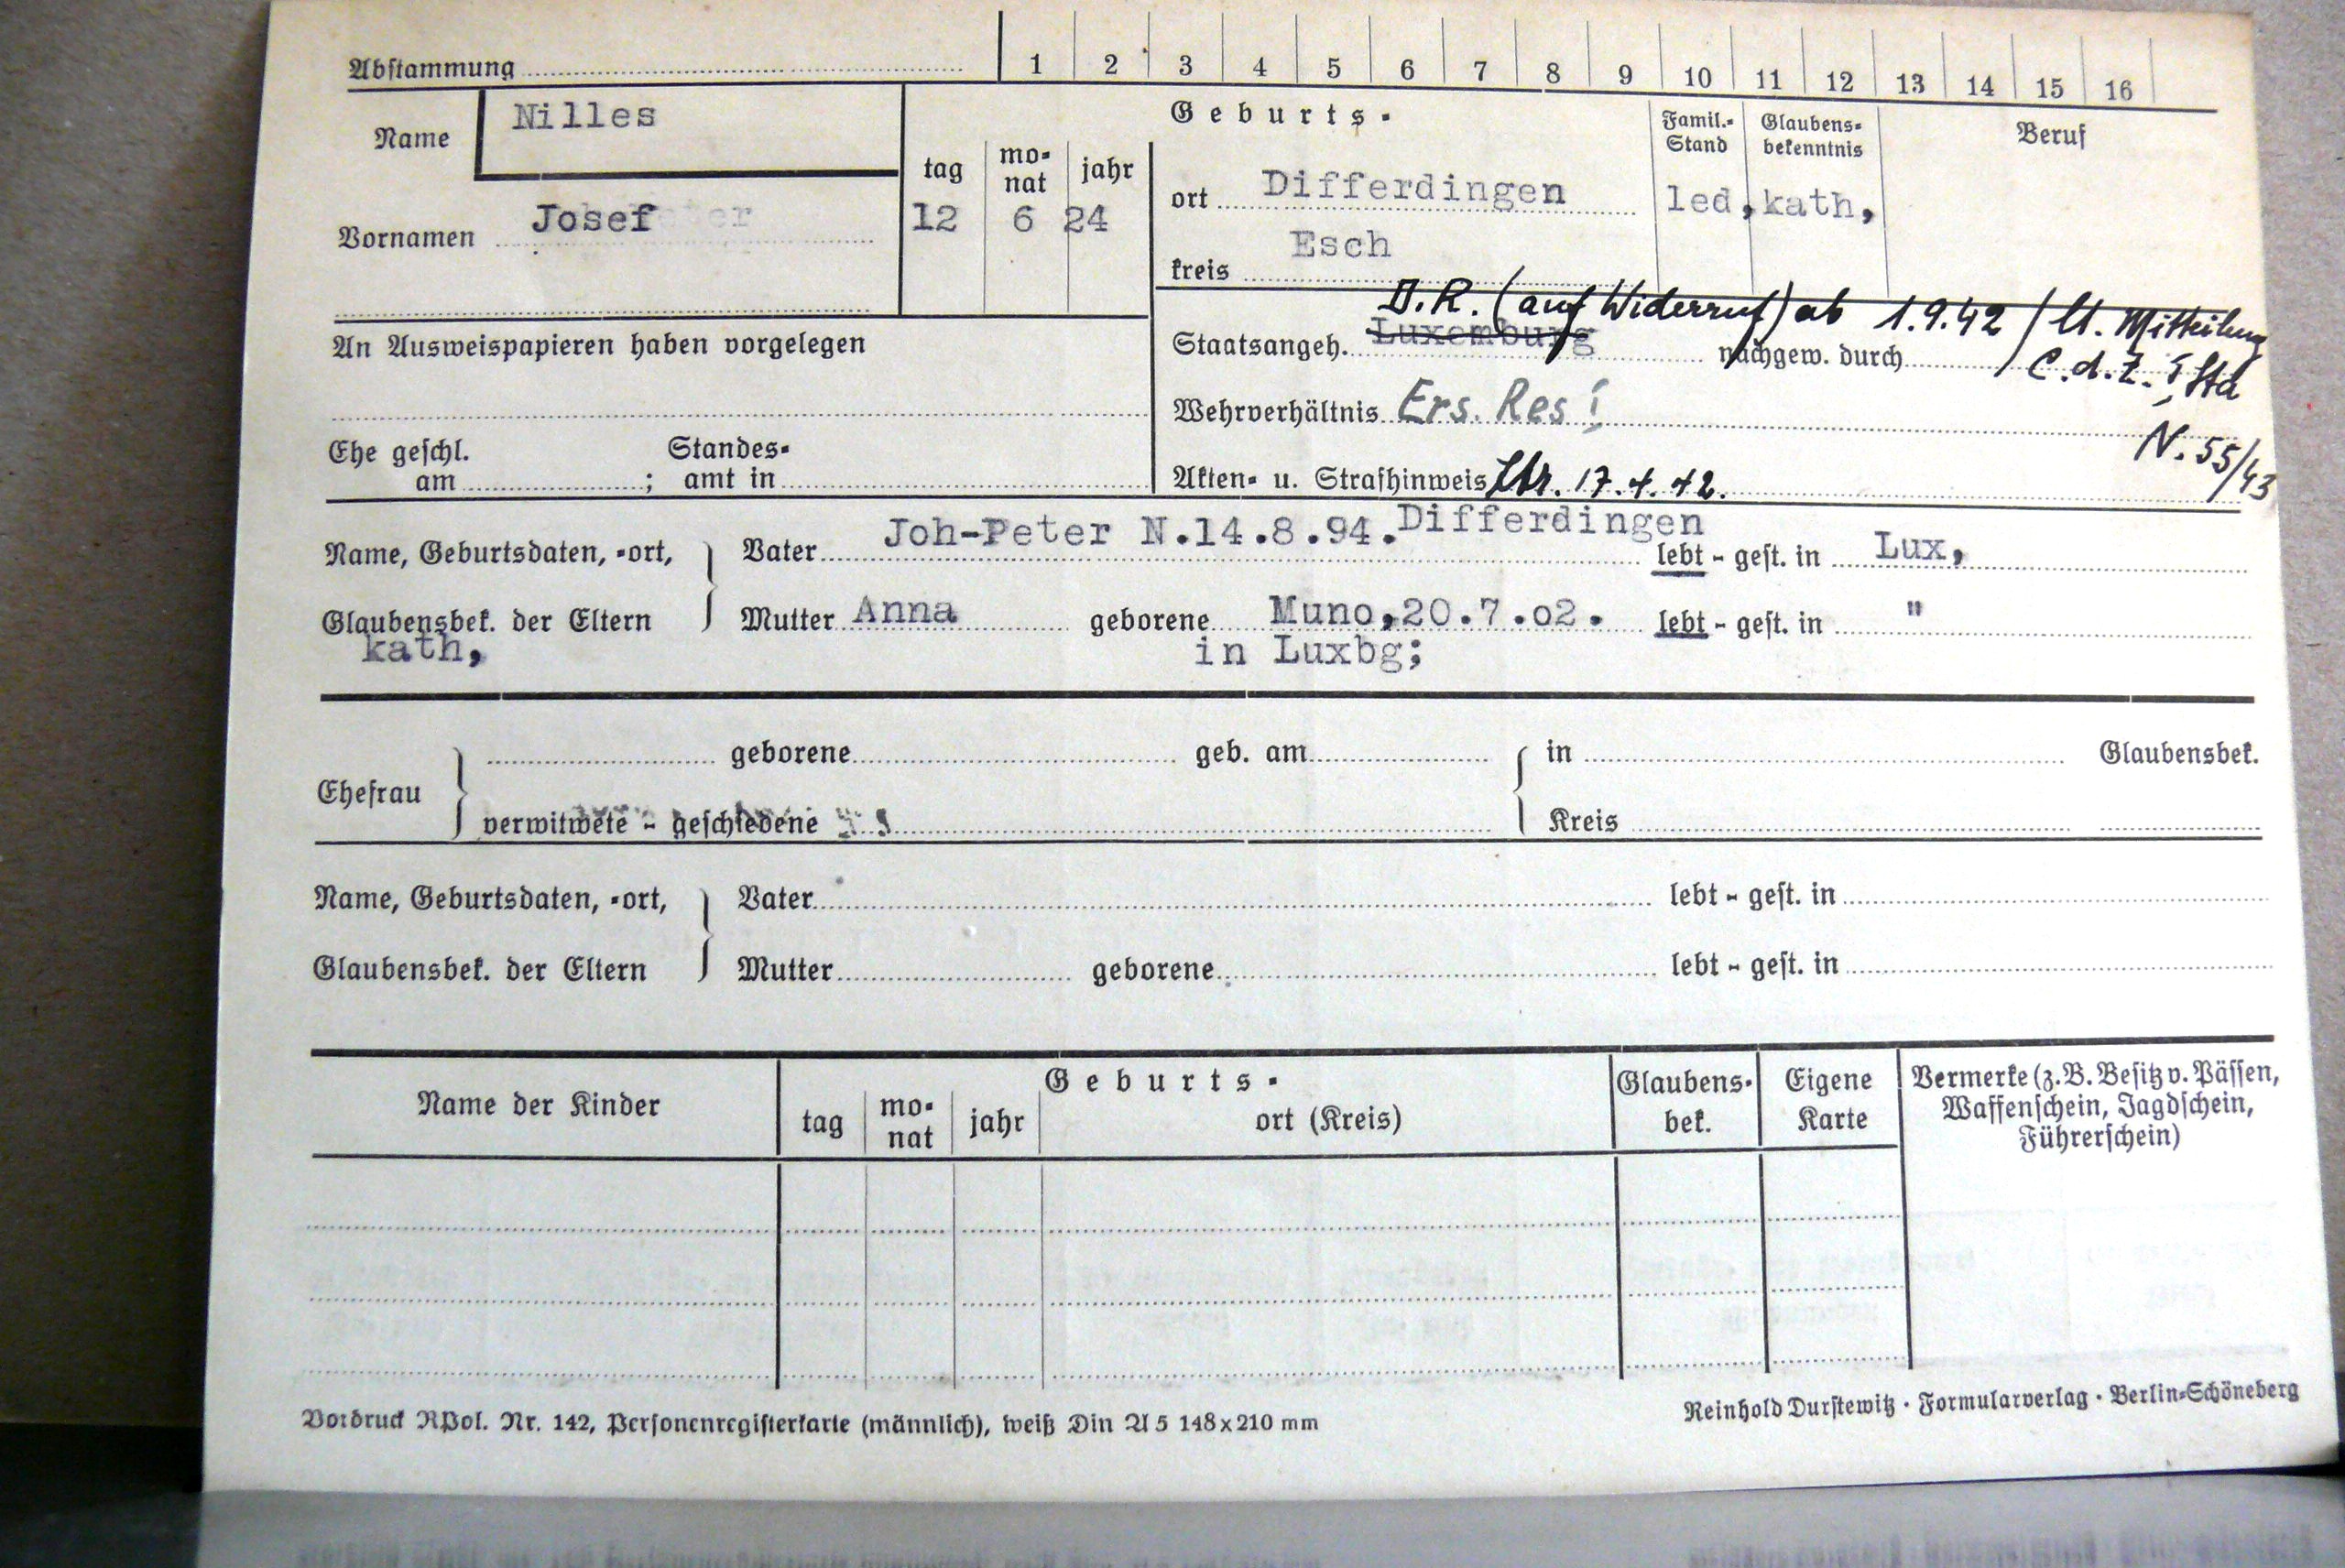 Abstammung 1 2 3 4 5 6 7 8 9 10 11 12 13 14 15 16
Name Nilles
Vornamen Josef
Geburts-
tag mo-nat jahr
12 6 24
ort Differdingen
kreis Esch
Famil.-Stand
led,
Glaubens-bekenntnis
kath,
Beruf
An Ausweispapieren haben vorgelegen
D.R. (auf Widerruf) ab 1.9.42 / lt. Mitteilung
Staatsangeh. Luxemburg nachgew. durch C.d.Z. Sta
N. 55/43
Wehrverhältnis Ers. Res I
Ehe geschl. am ; Standes-amt in
Akten- u. Strafhinweis 17.4.42.
Name, Geburtsdaten, -ort, Vater Joh-Peter N.14.8.94. Differdingen lebt - gest. in Lux,
Glaubensbek. der Eltern Mutter Anna geborene Muno,20.7.02. lebt - gest. in "
kath, in Luxbg;
Ehefrau geborene geb. am in Glaubensbek.
verwitwete - geschiedene Kreis
Name, Geburtsdaten, -ort, Vater lebt - gest. in
Glaubensbek. der Eltern Mutter geborene lebt - gest. in
Name der Kinder
Geburts-
tag mo-nat jahr ort (Kreis)
Glaubens-bek.
Eigene Karte
Vermerke (z.B. Besitz v. Pässen,
Waffenschein, Jagdschein,
Führerschein)
Vordruck RPol. Nr. 142, Personenregisterkarte (männlich), weiß Din A 5 148x210 mm
Reinhold Durstewitz · Formularverlag · Berlin-Schöneberg